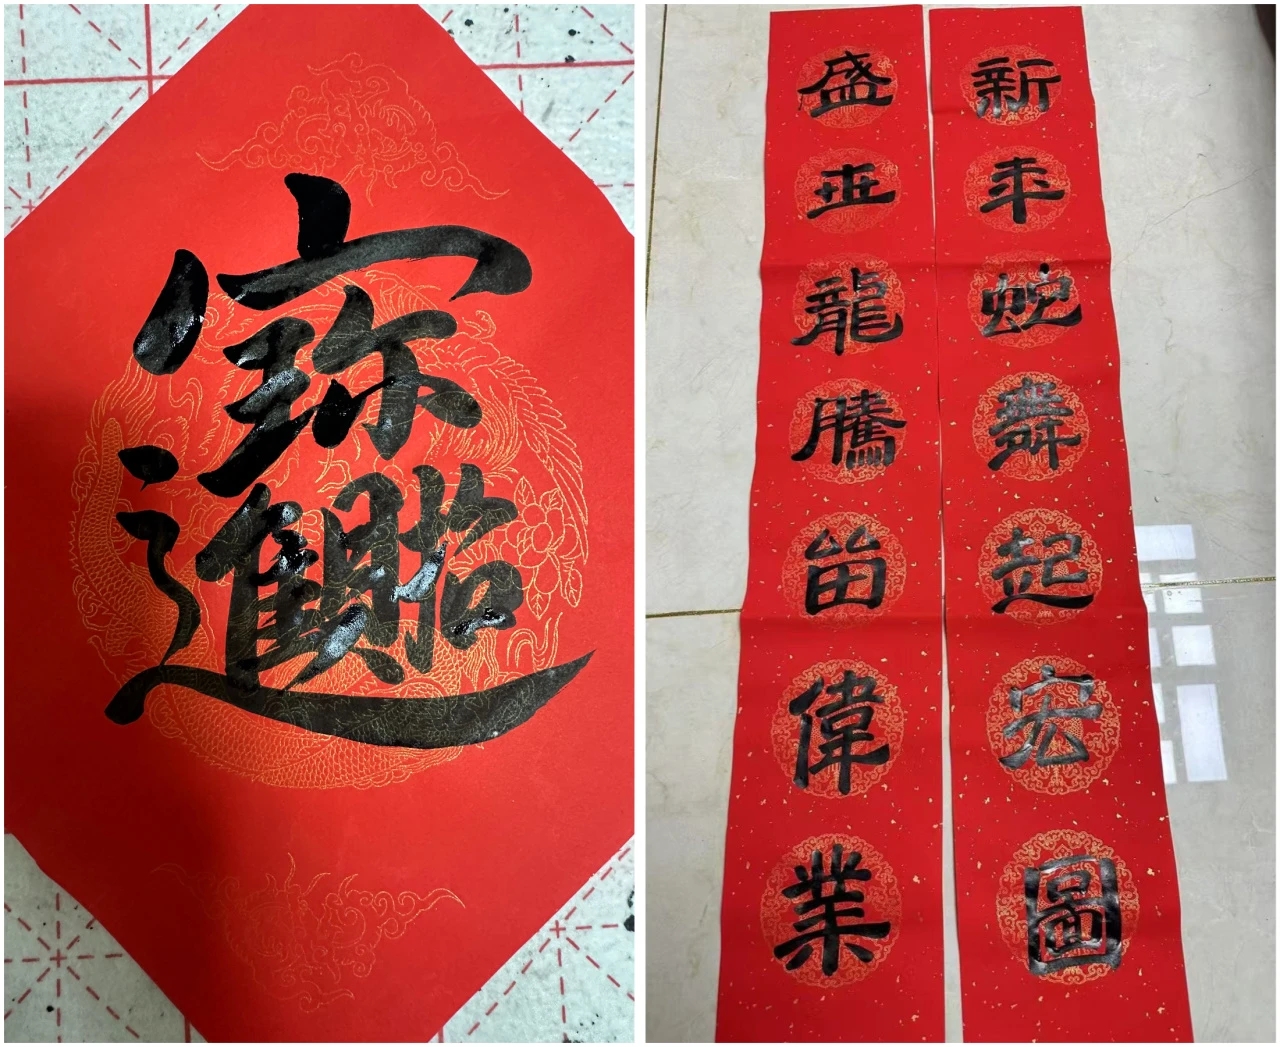 招財進寶
新年蛇舞起宏圖
盛世龍騰留偉業